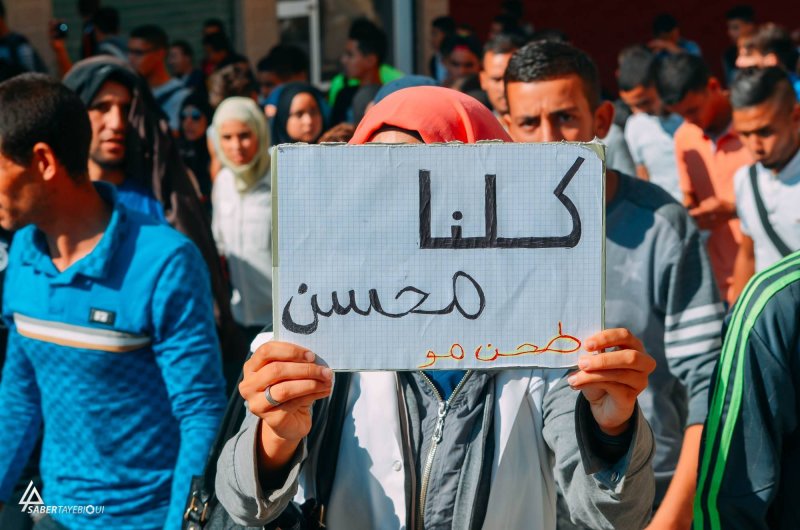 كلنا
محسن
طحن مو
SABERTAYEBIOUI